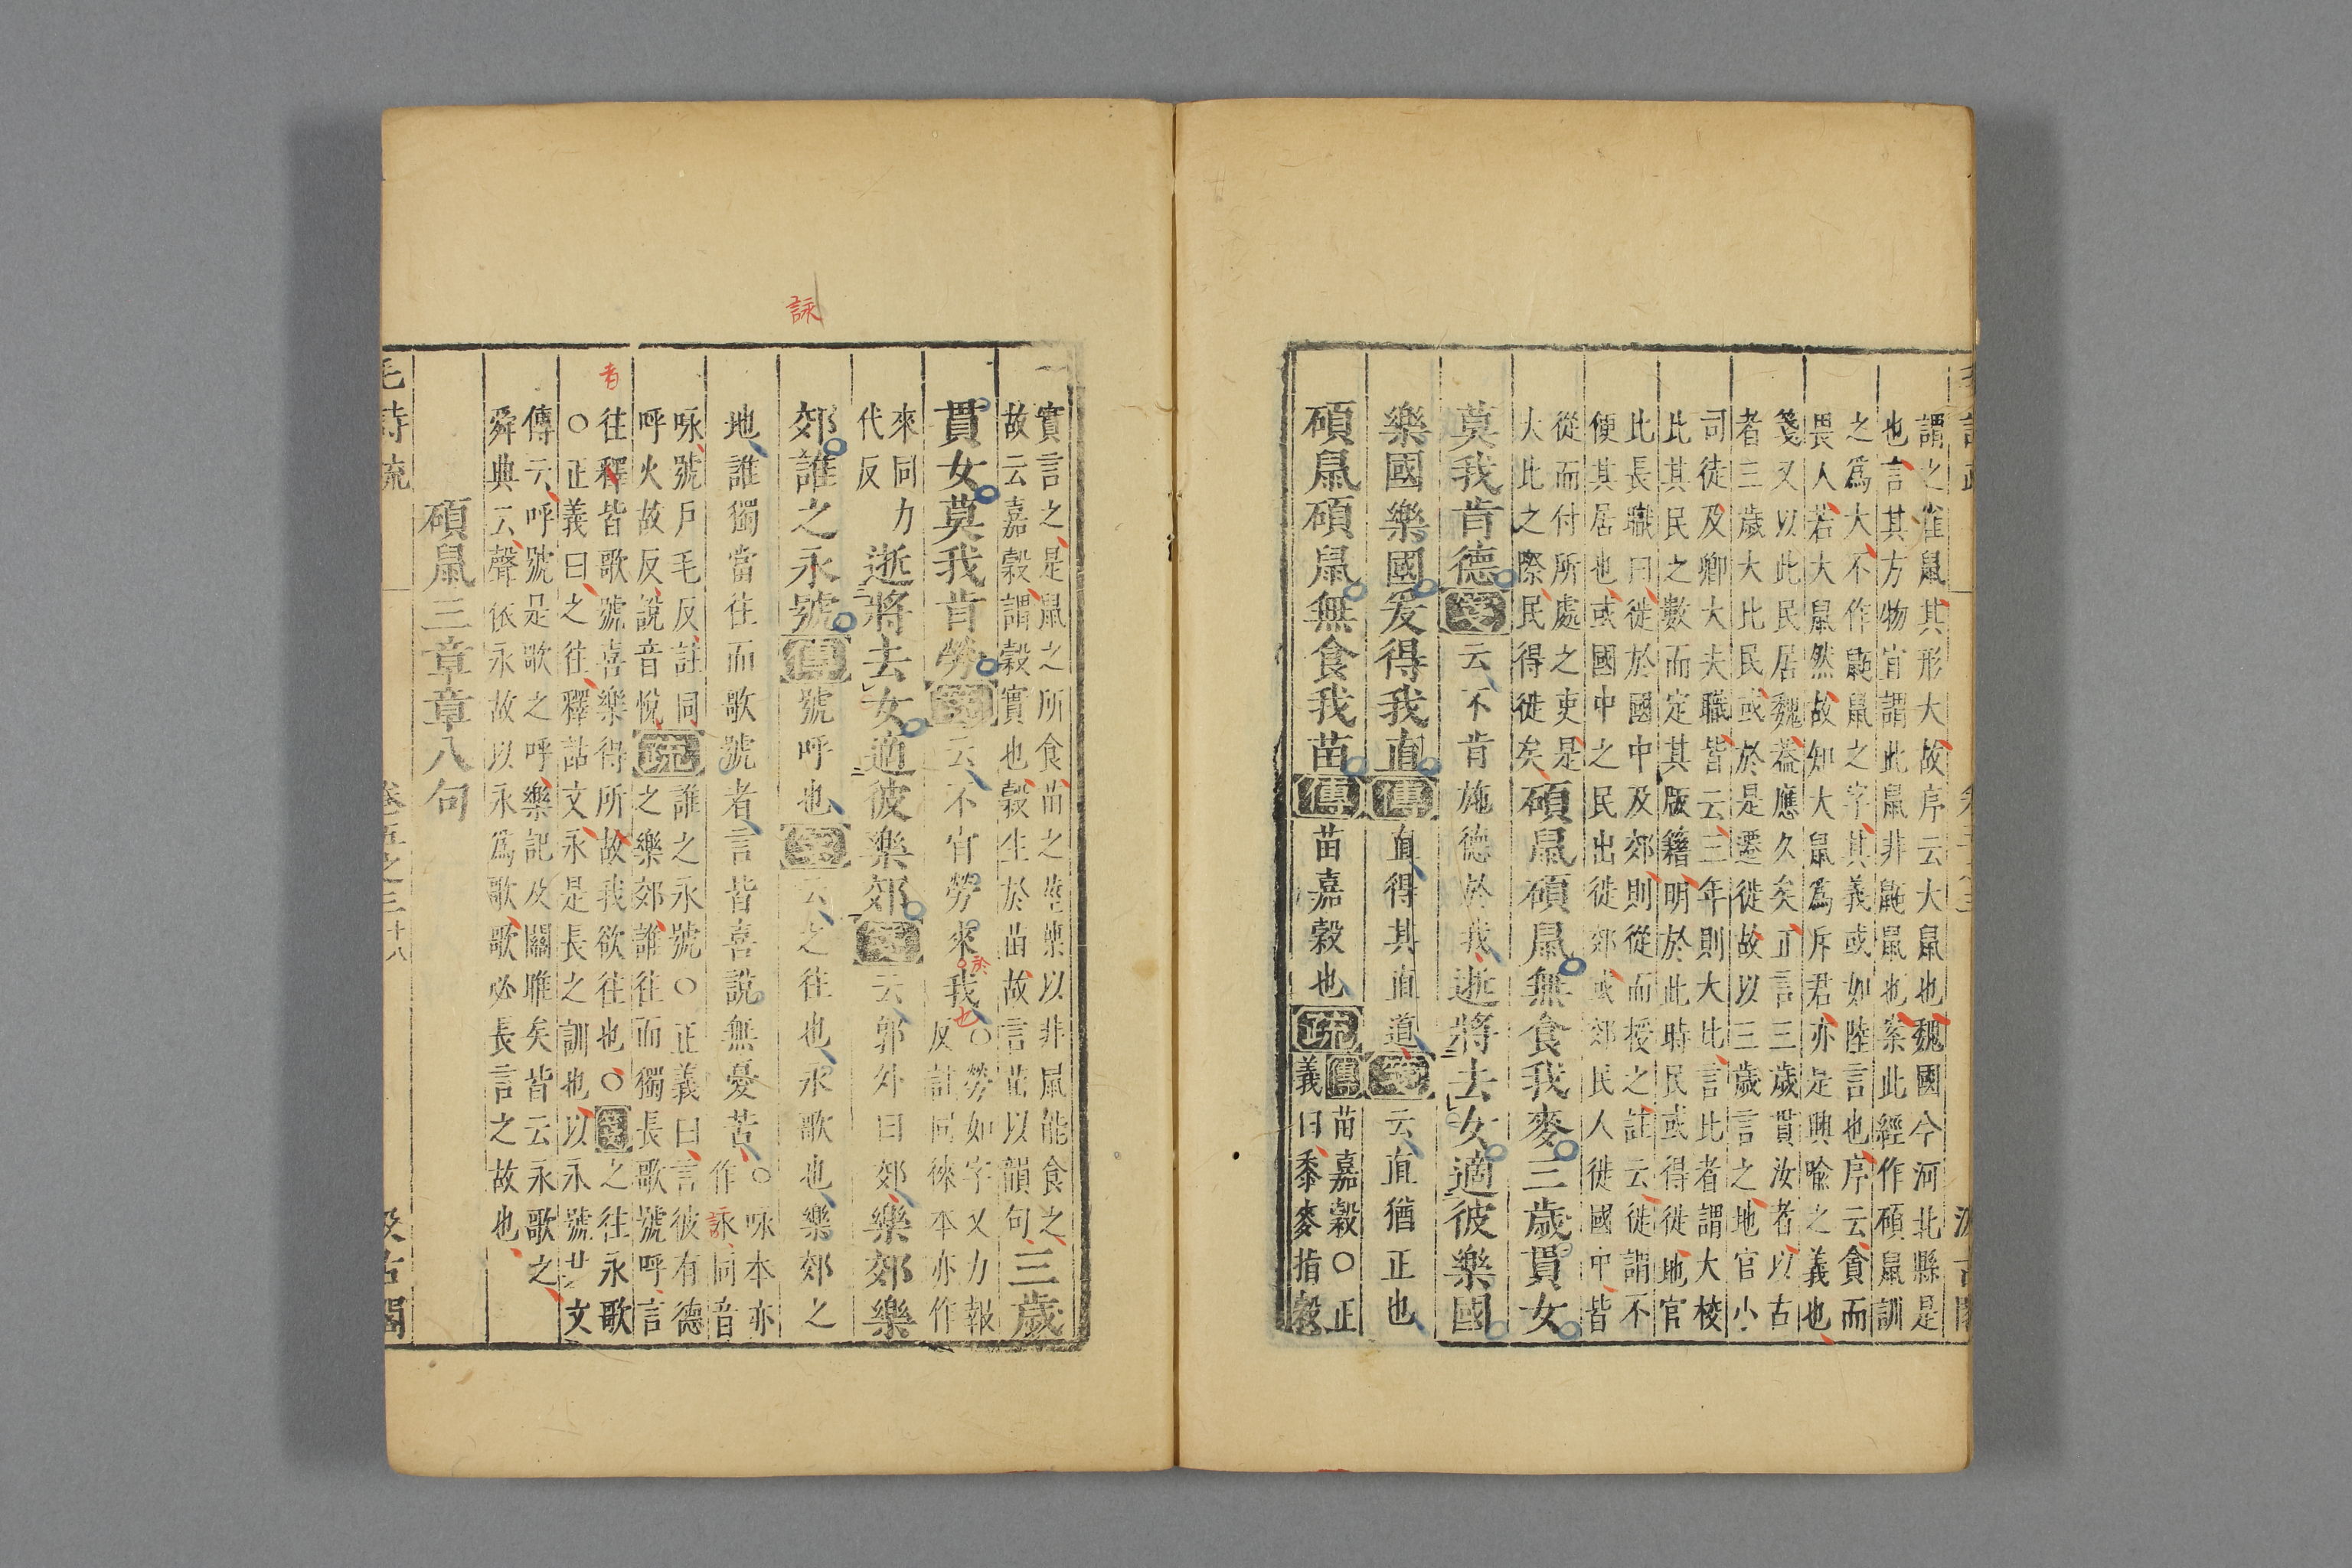 謂之雀鼠其形大故序云大鼠也魏國今河北縣是
也言其方物宜謂此鼠非鼫鼠也案此經作碩鼠訓
之為大不作鼫鼠之字其義或如陸言也序云貪而
畏人若大鼠然故知大鼠為斥君亦是興喻之義也
箋又以此民居魏蓋應久矣正言三歲貫汝者以古
者三歲大比民或於是遷徙故以三歲言之地官小
司徒及卿大夫職皆云三年則大比言比者謂大校
此其民之數而定其版籍明於此時民或得徙地官
比長職曰徙於國中及郊則從而授之註云徙謂不
便其居也或國中之民出徙郊或郊民人徙國中皆
從而付所處之吏是
大比之際民得徙矣碩鼠碩鼠無食我麥三歲貫女
莫我肯德箋云不肯施德於我逝將去女適彼樂國
樂國樂國爰得我直傳直得其直道箋云直猶正也
碩鼠碩鼠無食我苗傳苗嘉穀也疏傳苗嘉穀○正
義曰黍麥指穀
實言之是鼠之所食苗之莖葉以非鼠能食之
故云嘉穀謂穀實也穀生於苗故言苗以韻句三歲
貫女莫我肯勞箋云不肯勞來我○勞如字又力報
於
也
反註同徠本亦作
來同力
代反逝將去女適彼樂郊箋云郭外曰郊樂郊樂
詠
郊誰之永號傳號呼也箋云之往也永歌也樂郊之
地誰獨當往而歌號者言皆喜說無憂苦○咏本亦
作詠同音
咏號戶毛反註同
呼火故反說音悅疏誰之永號○正義曰言彼有德
之樂郊誰往而獨長歌號呼言
者
往釋皆歌號喜樂得所故我欲往也○箋之往永歌
○正義曰之往釋詁文永是長之訓也以永號共文
傳云呼號是歌之呼樂記及關雎矣皆云永歌之
舜典云聲依永故以永為歌歌必長言之故也
碩鼠三章章八句
毛詩疏 卷五之三 十八 汲古閣